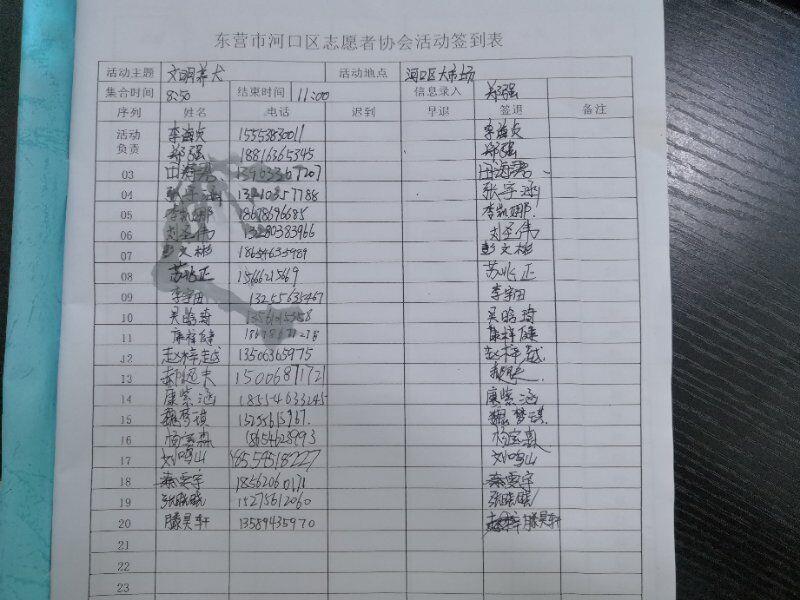 东营市河口区志愿者协会活动签到表
活动主题 文明养犬 活动地点 河口区大市场
集合时间 8:50 结束时间 11:00 信息录入 郑强
序列 姓名 电话 迟到 早退 签退 备注
活动负责 李海贞 15553830011 李海贞
郑强 18816365345 郑强
03 田海君 田海君
04 张宇涵 张宇涵
05 18678696685
06 刘圣伟 13280383966 刘圣伟
07 彭文彬 18654635989 彭文彬
08 苏兆正 苏兆正
09 李宇田 李宇田
10 吴晗琦 吴晗琦
11 康梓健 康梓健
12 赵梓越 13506365975 赵梓越
13 15006871721
14 康紫涵 18554633245 康紫涵
15 魏梦琪 魏梦琪
16 杨宝森 18654628993 杨宝森
17 刘鸣山 刘鸣山
18 秦雯宇 18562060171 秦雯宇
19 张晓晓 15275612060 张晓晓
20 滕昊轩 13589435970 滕昊轩
21
22
23